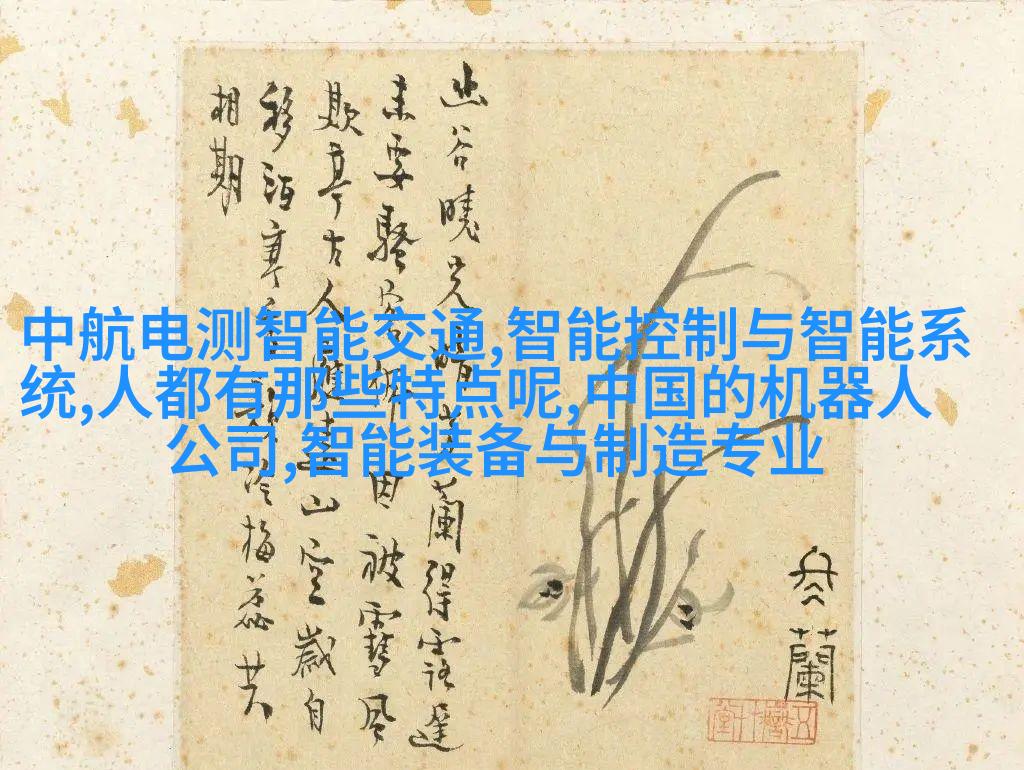 中航电测智能交通,智能控制与智能系
统,人都有那些特点呢,中国的机器人
公司,智能装备与制造专业
幽谷曉光蘭得露遲
未要騷客因被風
欺古人山空歲自
移酒寒冷梅蕊共
相期
冬蘭